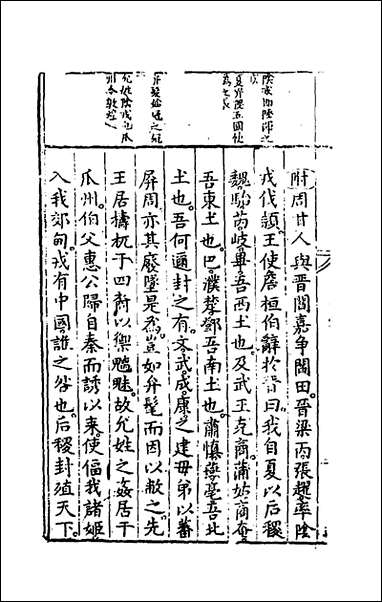 陰戎陸渾之
戎
夏弃陸五國使
為之長
弁髦始冠之冠
允姓陰戎也瓜
州今敦煌
附周甘人與晉閻嘉爭閻田。晉梁丙張趯率陰
戎伐潁。王使詹桓伯辭於晉曰。我自夏以后稷
魏駘芮岐畢。吾西土也。及武王克商。蒲姑商奄。
吾東土也。巴濮楚鄧。吾南土也。肅慎燕亳。吾北
土也。吾何邇封之有。文武成康之建母弟以蕃
屏周。亦其廢墜是為。豈如弁髦而因以敝之。先
王居檮杌于四裔。以禦魑魅。故允姓之姦居于
瓜州。伯父惠公歸自秦。而誘以來。使偪我諸姬
入我郊甸。戎有中國。誰之咎也。后稷封殖天下。